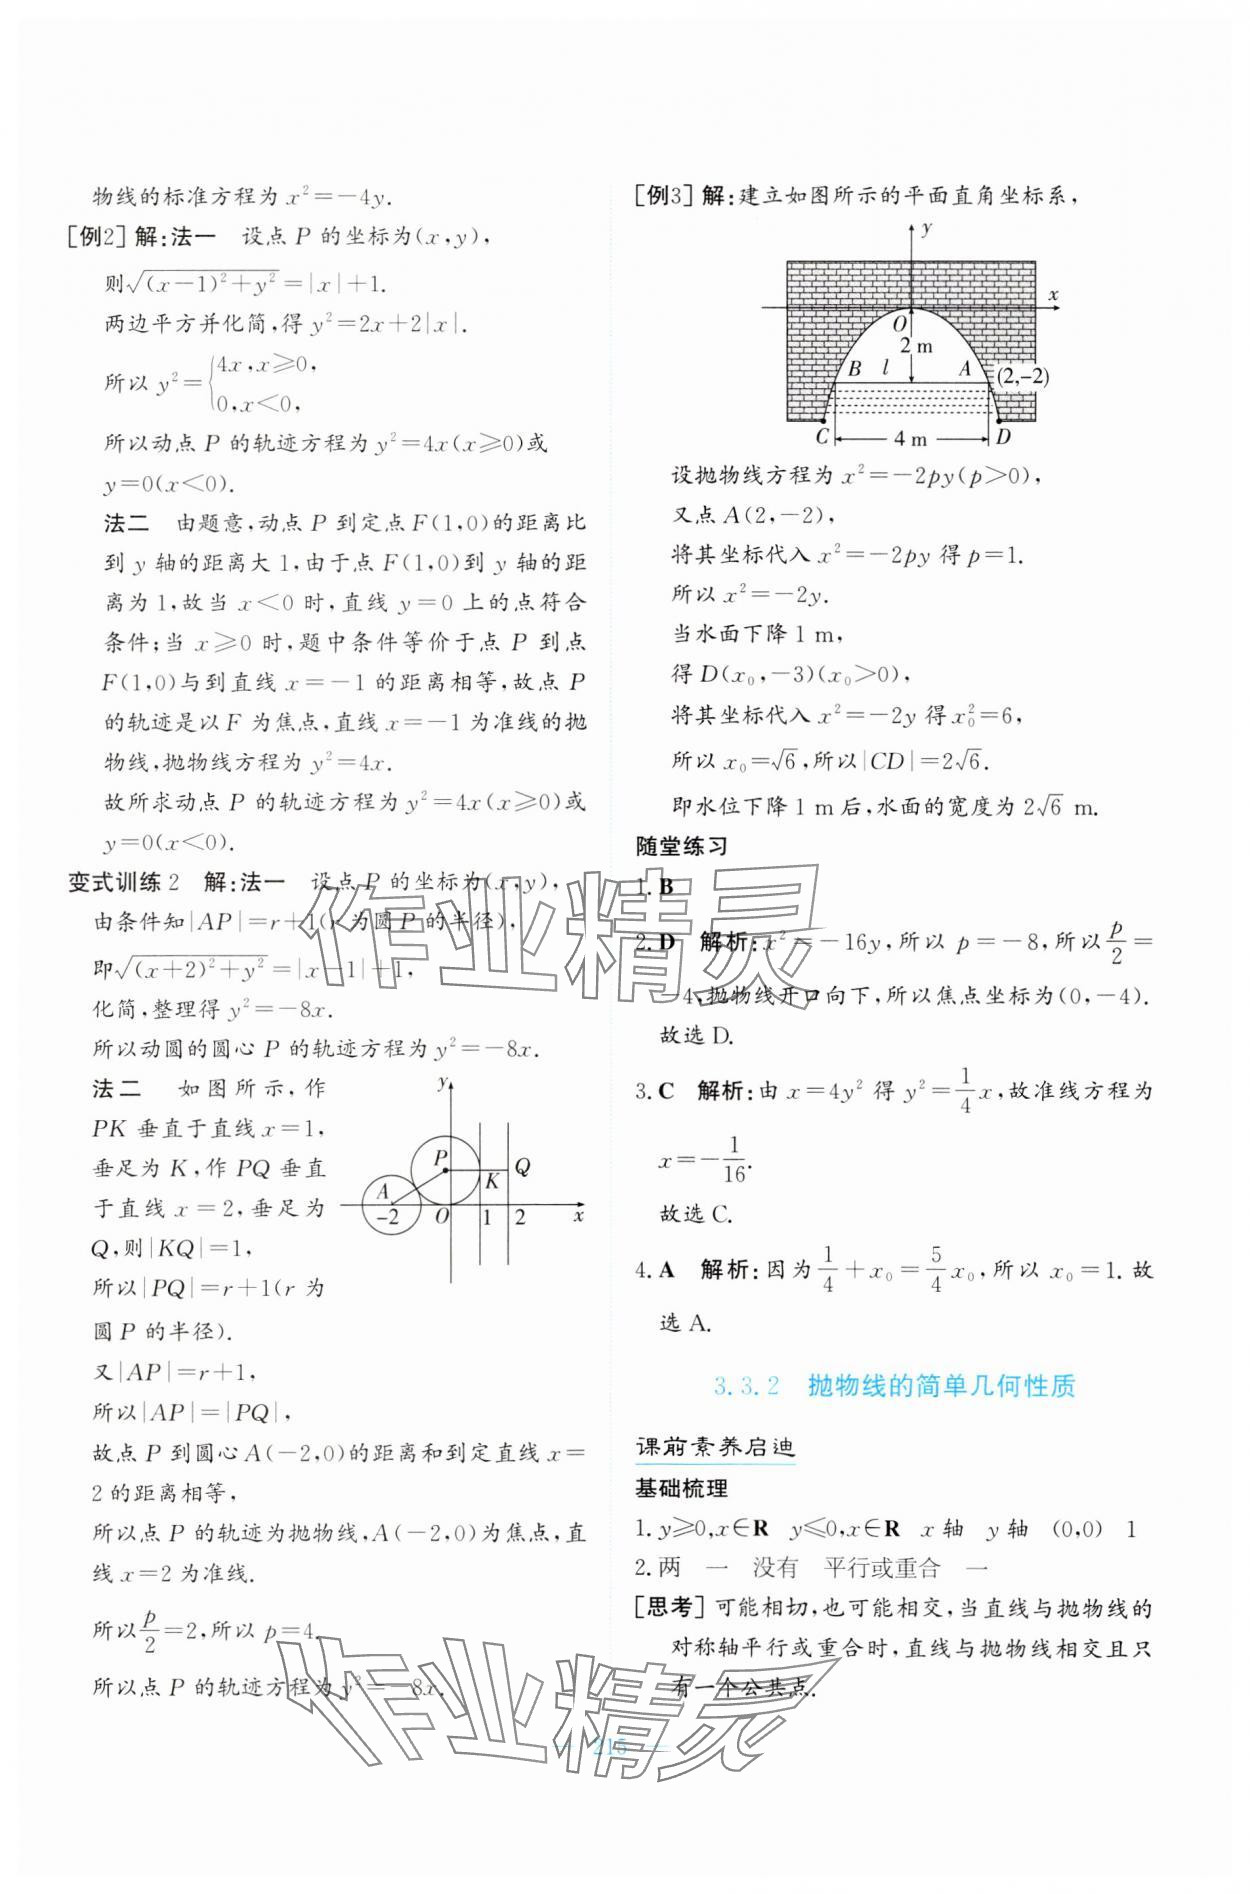 物线的标准方程为 x²=-4y.
[例2] 解:法一 设点 P 的坐标为(x,y),
则√((x-1)²+y²)=|x|+1.
两边平方并化简,得 y²=2x+2|x|.
所以 y²={4x,x≥0,
0,x<0,
所以动点 P 的轨迹方程为 y²=4x(x≥0)或
y=0(x<0).
法二 由题意,动点 P 到定点 F(1,0)的距离比
到 y 轴的距离大 1,由于点 F(1,0)到 y 轴的距
离为 1,故当 x<0 时,直线 y=0 上的点符合
条件;当 x≥0 时,题中条件等价于点 P 到点
F(1,0)与到直线 x=-1 的距离相等,故点 P
的轨迹是以 F 为焦点,直线 x=-1 为准线的抛
物线,抛物线方程为 y²=4x.
故所求动点 P 的轨迹方程为 y²=4x(x≥0)或
y=0(x<0).
变式训练 2 解:法一 设点 P 的坐标为(x,y),
由条件知|AP|=r+1(r 为圆 P 的半径),
即√((x+2)²+y²)=|x-1|+1,
化简,整理得 y²=-8x.
所以动圆的圆心 P 的轨迹方程为 y²=-8x.
法二 如图所示,作
PK 垂直于直线 x=1,
垂足为 K,作 PQ 垂直
于直线 x=2,垂足为
Q,则|KQ|=1,
所以|PQ|=r+1(r 为
圆 P 的半径).
y
P
Q
K
A
-2
O
1
2
x
又|AP|=r+1,
所以|AP|=|PQ|,
故点 P 到圆心 A(-2,0)的距离和到定直线 x=
2 的距离相等,
所以点 P 的轨迹为抛物线,A(-2,0)为焦点,直
线 x=2 为准线.
所以p/2=2,所以 p=4.
所以点 P 的轨迹方程为 y²=-8x.
[例3] 解:建立如图所示的平面直角坐标系,
y
x
O
2 m
B
l
A
(2,-2)
C
4 m
D
设抛物线方程为 x²=-2py(p>0),
又点 A(2,-2),
将其坐标代入 x²=-2py 得 p=1.
所以 x²=-2y.
当水面下降 1 m,
得 D(x₀,-3)(x₀>0),
将其坐标代入 x²=-2y 得 x₀²=6,
所以 x₀=√6,所以|CD|=2√6.
即水位下降 1 m 后,水面的宽度为 2√6 m.
随堂练习
1. B
2. D 解析:x²=-16y,所以 p=-8,所以p/2=
-4,抛物线开口向下,所以焦点坐标为(0,-4).
故选 D.
3. C 解析:由 x=4y² 得 y²=1/4x,故准线方程为
x=-1/16.
故选 C.
4. A 解析:因为1/4+x₀=5/4x₀,所以 x₀=1. 故
选 A.
3.3.2 抛物线的简单几何性质
课前素养启迪
基础梳理
1. y≥0,x∈R y≤0,x∈R x 轴 y 轴 (0,0) 1
2. 两 一 没有 平行或重合 一
[思考] 可能相切,也可能相交,当直线与抛物线的
对称轴平行或重合时,直线与抛物线相交且只
有一个公共点.
215
作业精灵
作业精灵